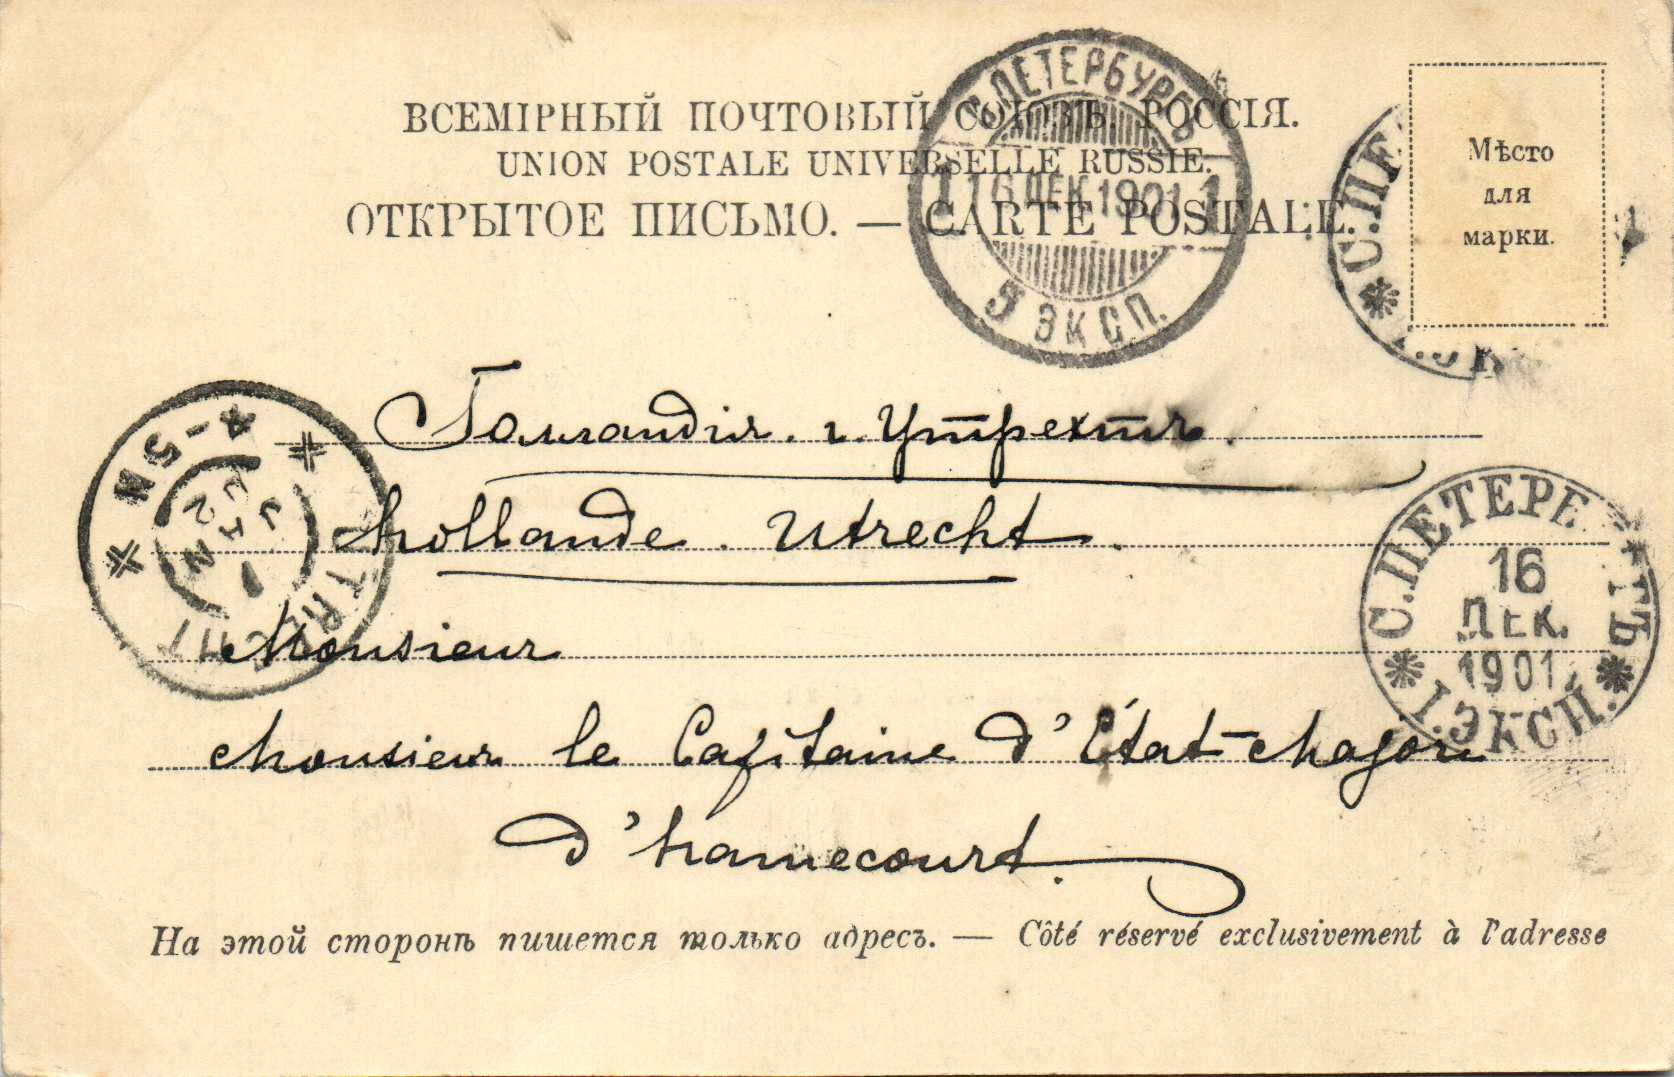 ВСЕМІРНЫЙ ПОЧТОВЫЙ СОЮЗЪ. РОССІЯ.
UNION POSTALE UNIVERSELLE RUSSIE.
ОТКРЫТОЕ ПИСЬМО. — CARTE POSTALE.
Мѣсто
для
марки.
С.ПЕТЕРБУРГЪ
1 16 ДЕК 1901 1
5 ЭКСП.
С.ПЕ
І.ЭК
Голландія. г. Утрехтъ.
Hollande. Utrecht.
UTRECHT
4-5N
1 JAN
02
Monsieur
Monsieur le Capitaine d'État-Major
d'Hamecourt.
С.ПЕТЕРБ
16
ДЕК.
1901
І.ЭКСП.
На этой сторонѣ пишется только адресъ. — Côté réservé exclusivement à l'adresse